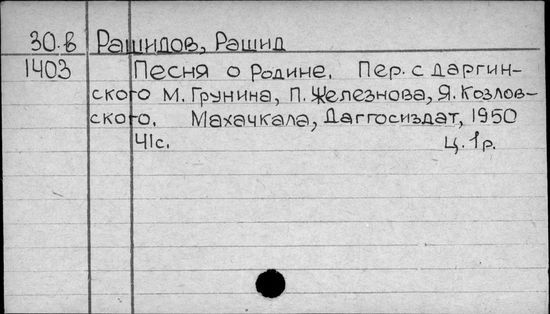 30.в Рашидов, Рашид
1403 Песня о Родине. Пер. с даргин-
ского М. Грунина, П. Железнова, Я. Козлов-
ского. Махачкала, Даггосиздат, 1950
41с. Ц. 1 р.